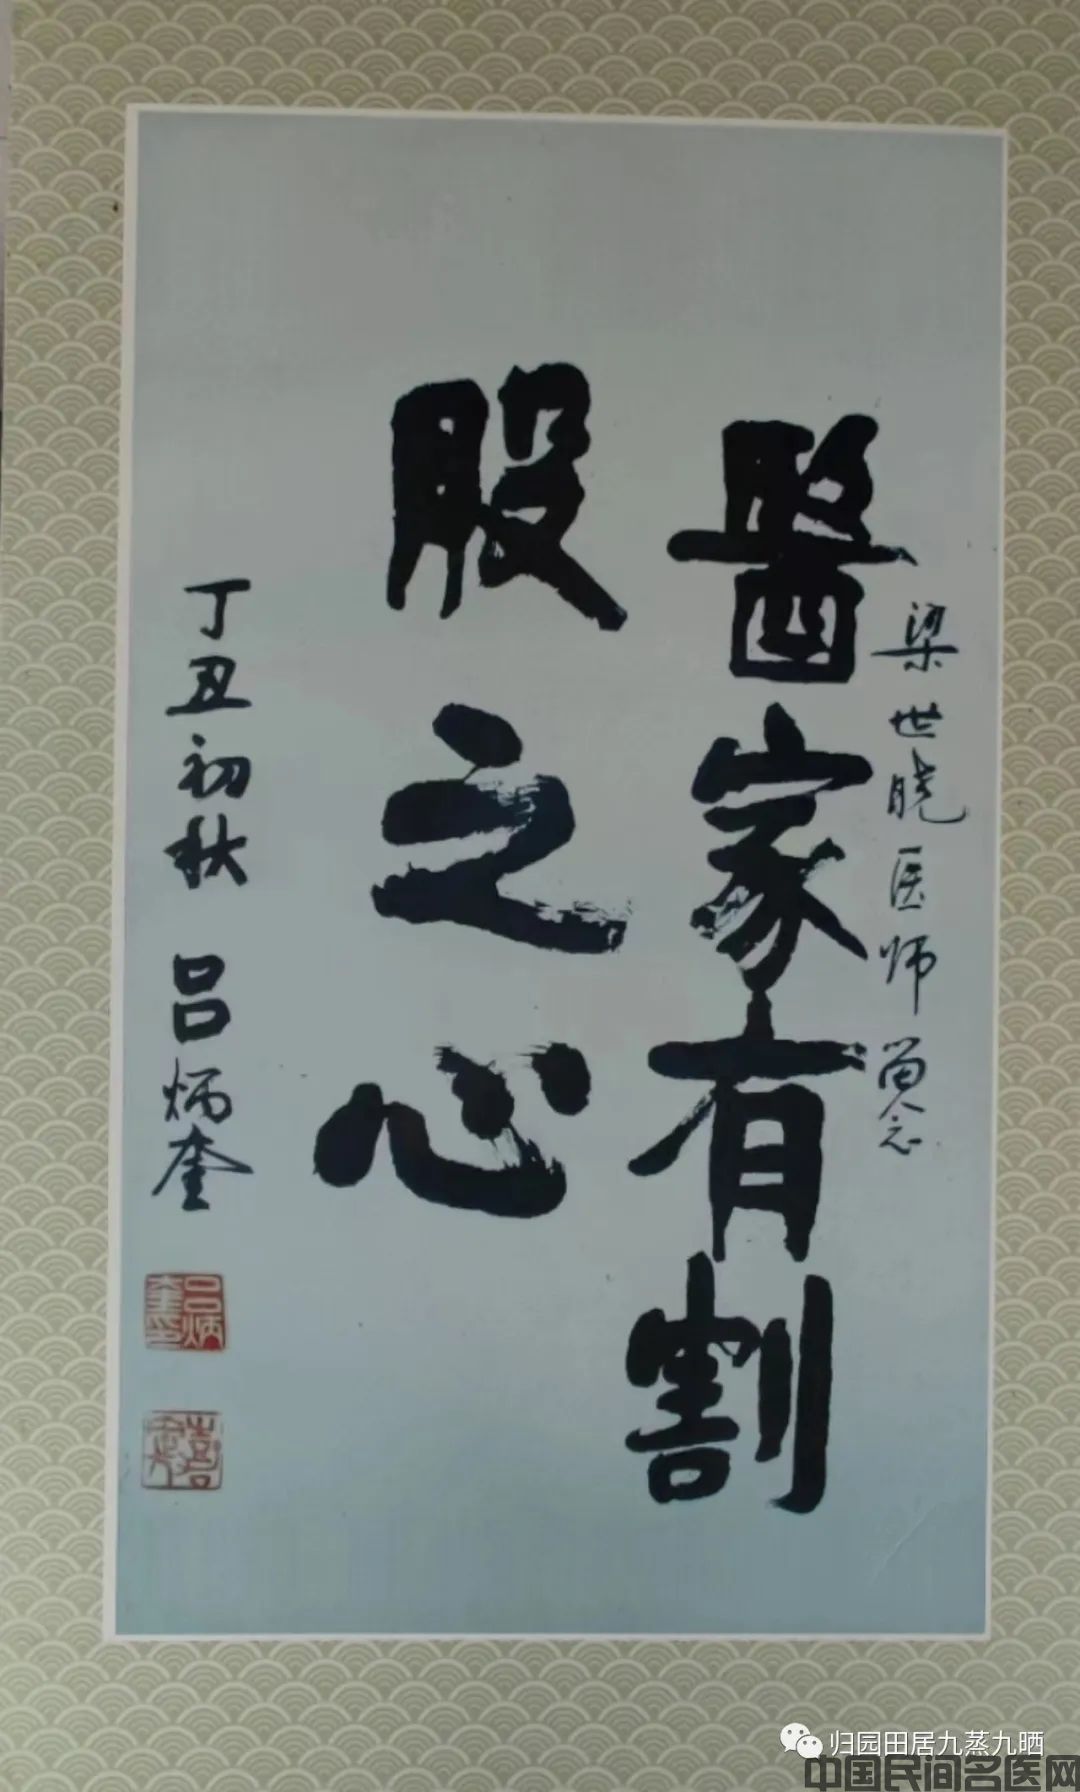 梁世晓医师留念
醫家有割
股之心
丁丑初秋 吕炳奎
吕炳奎印
归园田居九蒸九晒
中国民间名医网